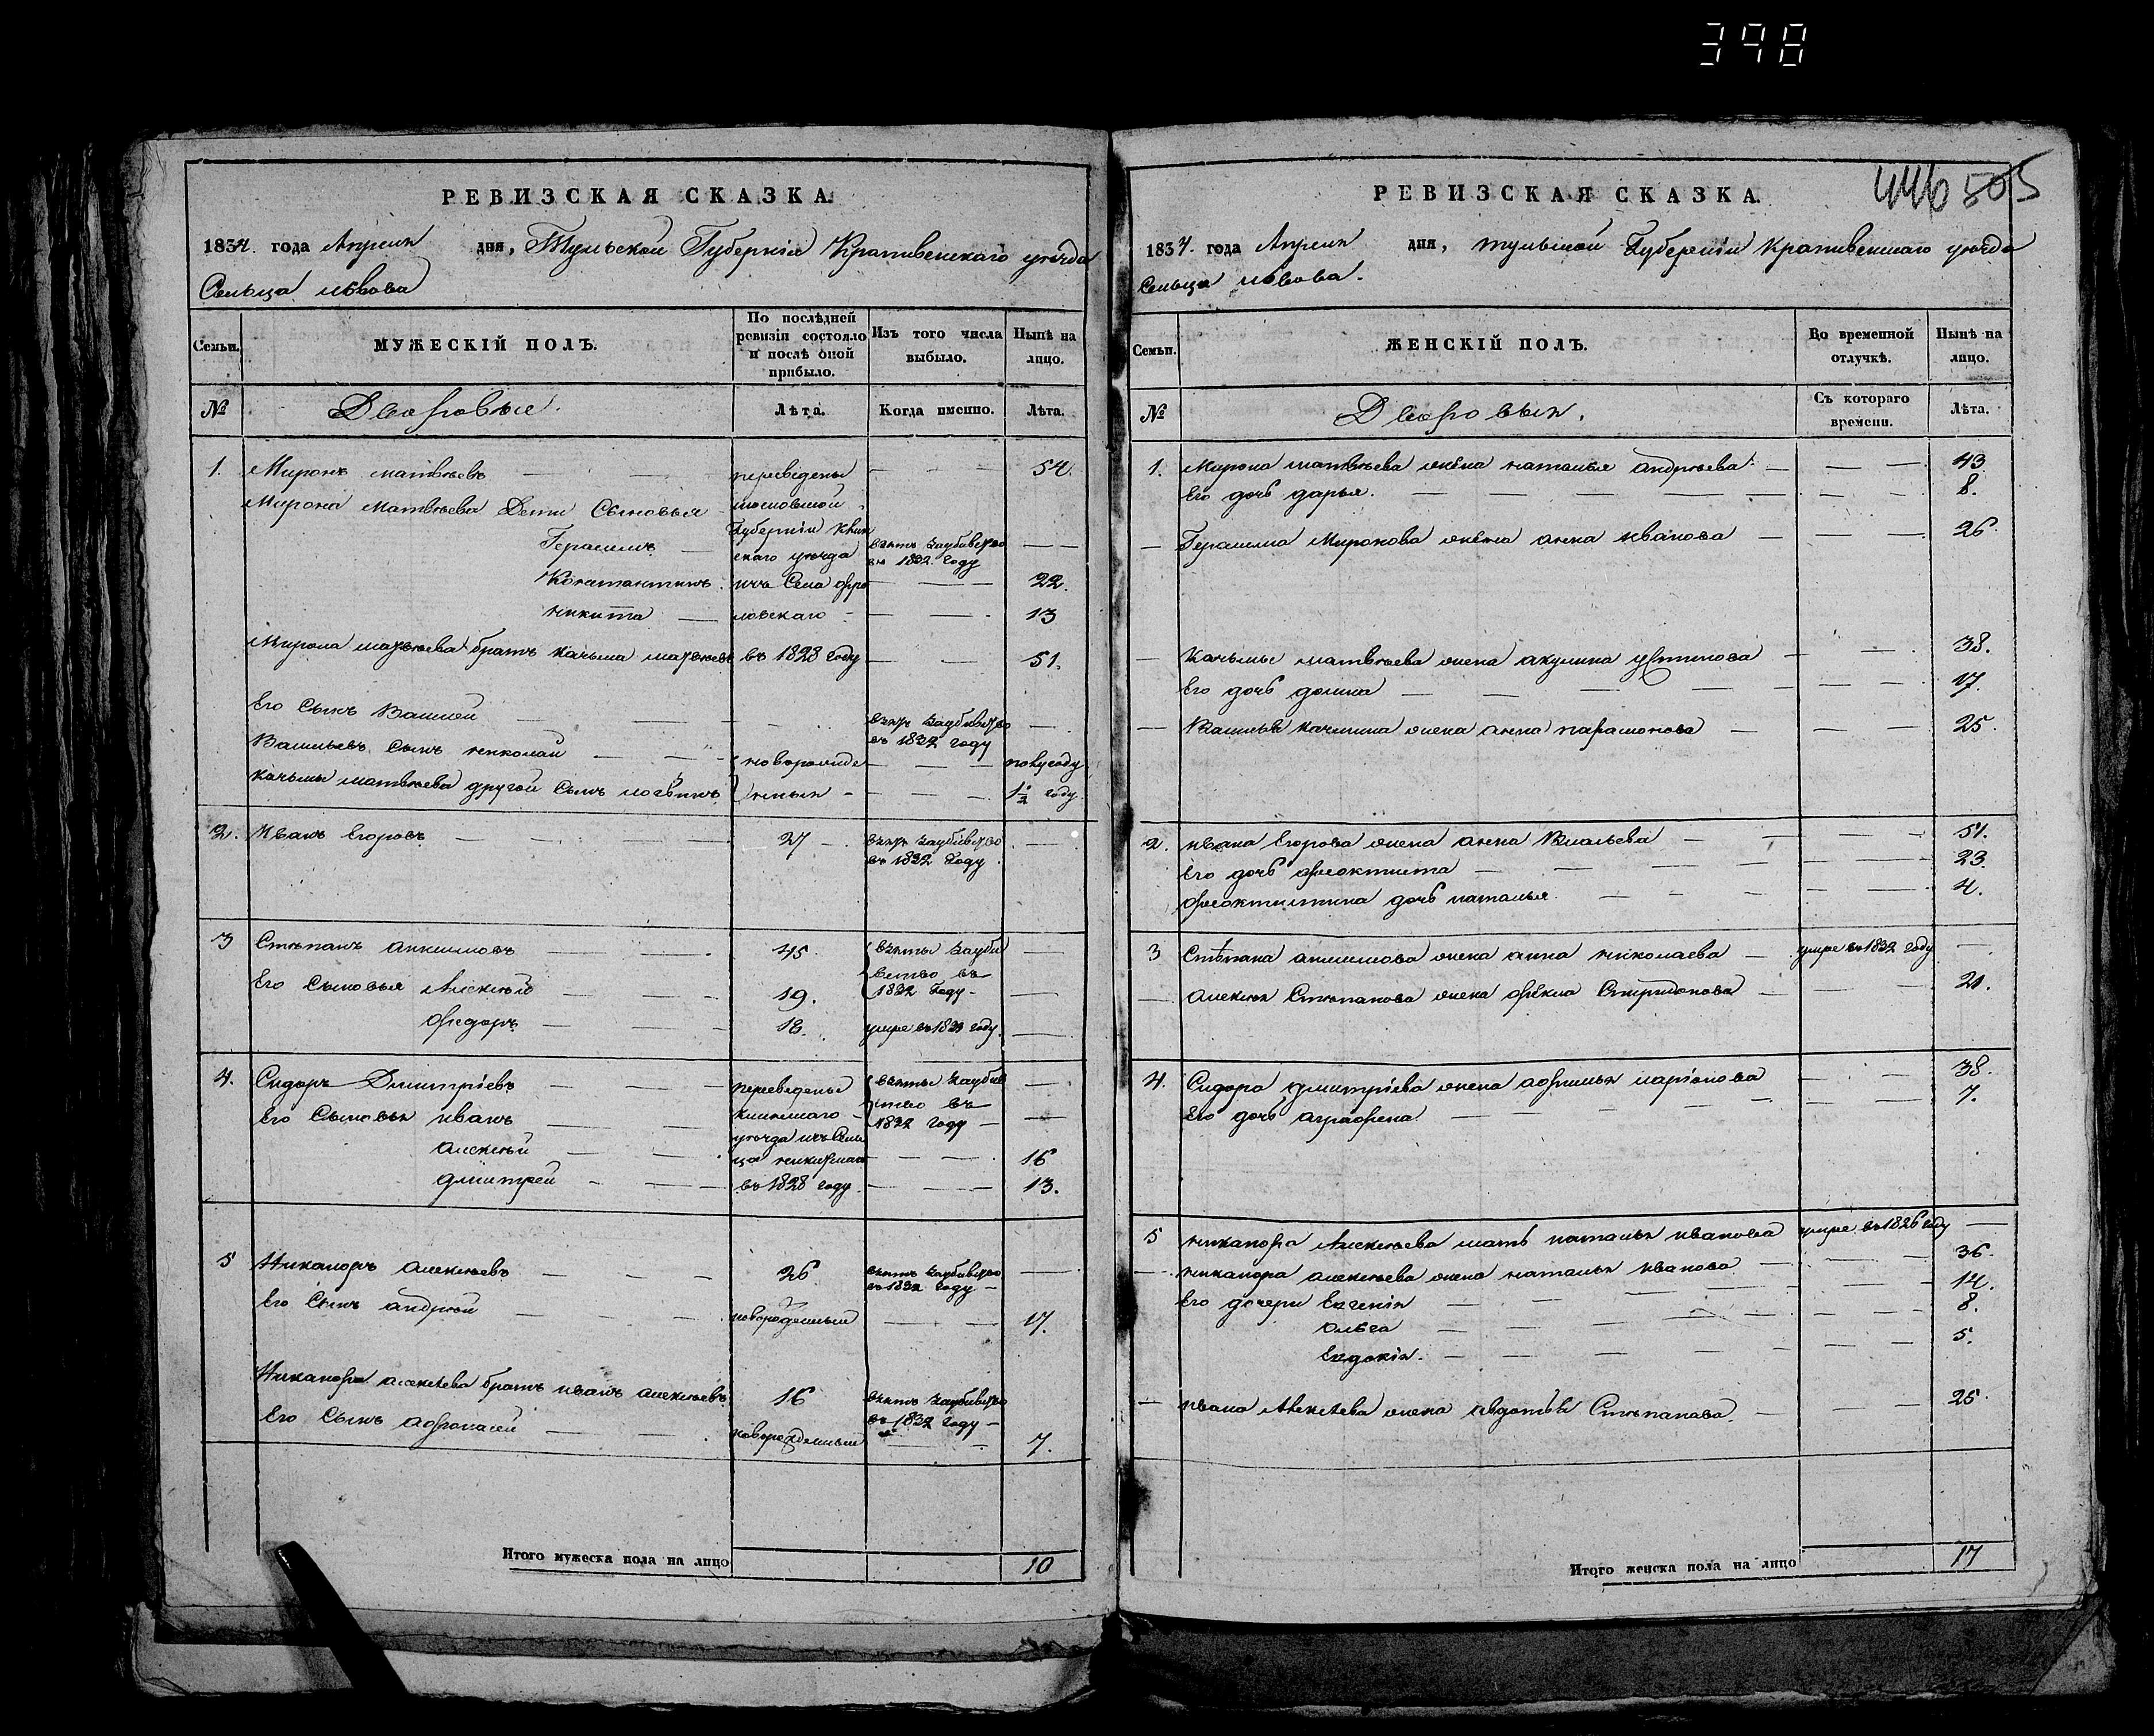 398
РЕВИЗСКАЯ СКАЗКА.
1834. года Апреля дня, Тульской Губерніи Крапивенскаго уезда
Сельца Львова
Семьи.
МУЖЕСКІЙ ПОЛЪ.
По послѣдней ревизіи состояло и послѣ оной прибыло.
Изъ того числа выбыло.
Нынѣ на лицо.
№
Дворовые.
Лѣта.
Когда именно.
Лѣта.
1. Миронъ матвѣевъ переведены 54.
Мирона Матвѣева Дети Сыновья московской
Губерніи Клин
Герасимъ скаго уезда взятъ заубивство въ 1832 году
Константинъ изъ Села фро 22.
никита ловскаго 13
Мирона матвѣева братъ Казьма матвѣевъ въ 1828 году 51.
Его Сынъ Василей взятъ заубивство въ 1832 году
Васильевъ Сынъ николай новорожде полугоду
Казьмы матвѣева другой Сынъ логвинъ нныя 1½ году.
2. Иванъ Егоровъ 27 взятъ заубивство въ 1832 году
3 Степанъ анкимовъ 45 взяты зауби
вство въ
Его Сыновья Алексѣй 19. 1832 году
федоръ 18. умре въ 1831 году.
4. Сидоръ Дмитріевъ переведены взяты заубив
Его Сыновья иванъ клинскаго ство въ
уезда изъ Сель 1832 году
алексѣй ца 16
дмитрей въ 1828 году 13.
5 Никаноръ алексѣевъ 26 взятъ заубивство въ 1832 году
Его Сынъ андрей новорожденный 17.
Никанора алексѣева братъ иванъ алексѣевъ 16 взятъ заубивство въ 1832 году
Его Сынъ афонасей новорожденный 7.
Итого мужеска пола на лицо 10
446 505
РЕВИЗСКАЯ СКАЗКА.
1834. года Апреля дня, тульской Губерніи Крапивенскаго уезда
Сельца Львова.
Семьи.
ЖЕНСКІЙ ПОЛЪ.
Во временной отлучкѣ.
Нынѣ на лицо.
№
Дворовыя.
Съ котораго времени.
Лѣта.
1. Мирона матвѣева жена наталья андрѣева 43
Его дочь дарья. 8.
Герасима Миронова жена анна иванова 26
Казьмы матвѣева жена акулина устинова 38.
Его дочь домна 17.
Василья Казмина жена анна парамонова 25.
2. ивана Егорова жена анна 51.
Его дочь феоктиста 23.
феоктистина дочь наталья 4.
3 Степана анкимова жена анна николаева умре въ 1832 году
алексѣя Степанова жена фёкла Спиридонова 21.
4. Сидора дмитріева жена афимья ларіонова 38.
Его дочь аграфена 7.
5 никанора Алексѣева мать наталья иванова умре въ 1826 году
никанора алексѣева жена наталья иванова 36.
Его дочери Евгенія 14.
ольга 8.
Евдокія. 5.
ивана Алексѣева жена авдотья Степанова. 25
Итого женска пола на лицо 17